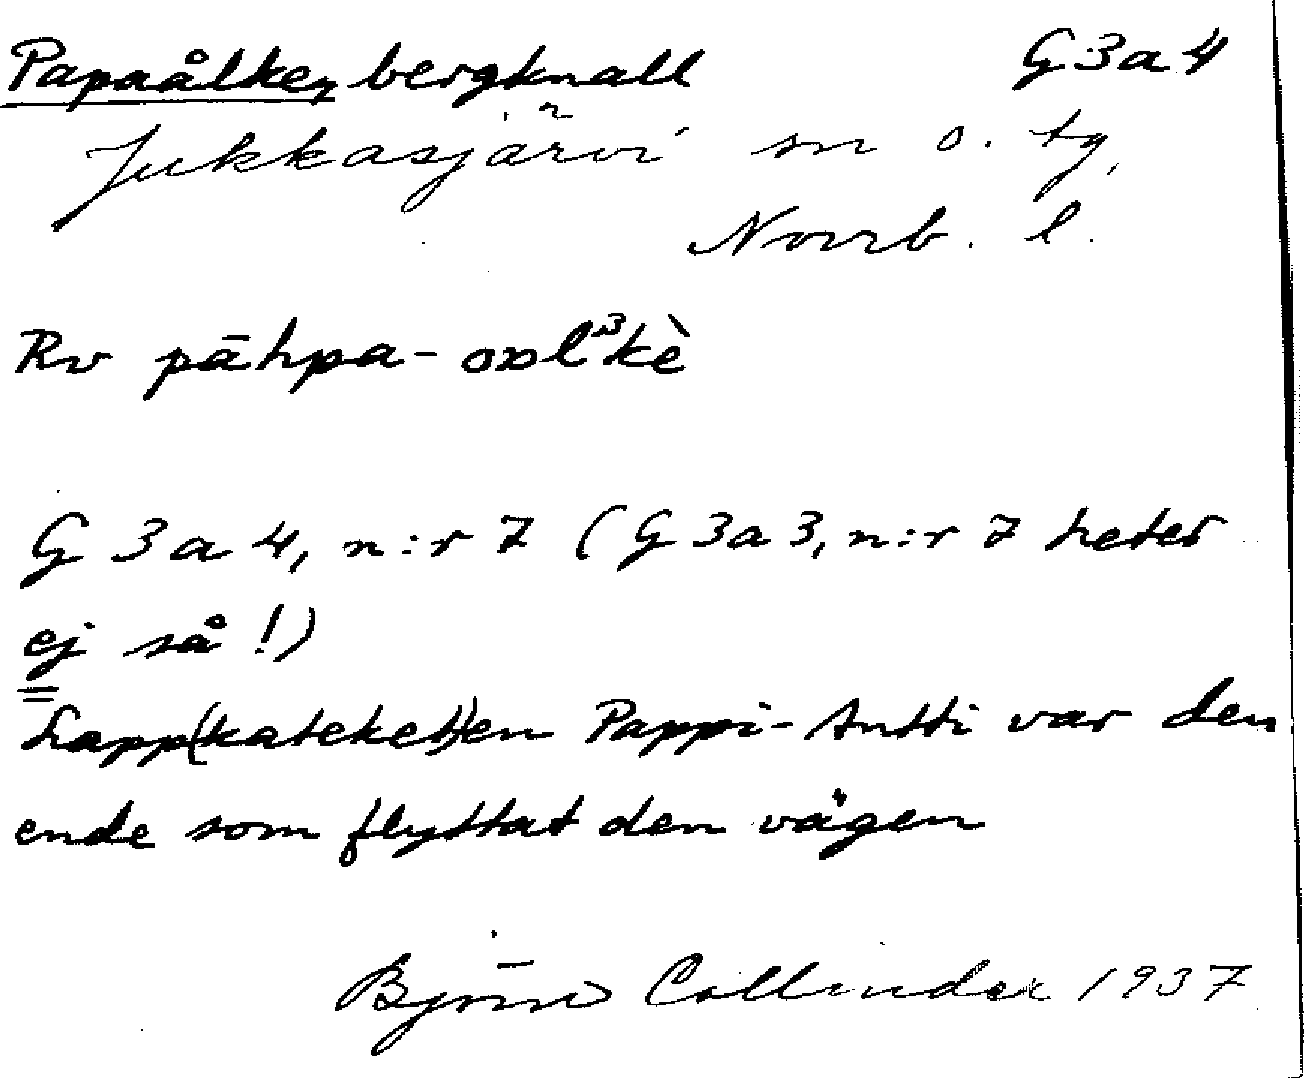 Papaålke, bergknall G 3 a 4
Jukkasjärvi sn o. tg,
Norrb. l.
Rv pāhpa-oɒl³kè
G 3 a 4, n:r 7 (G 3 a 3, n:r 7 heter
ej så!)
Lapp(kateket)en Pappi-Antti var den
ende som flyttat den vägen
Björn Collinder 1937